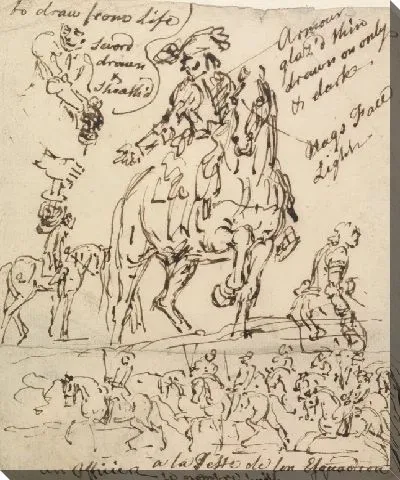 to draw from Life
Sword
drawn
&
sheath'd
Armour
glaz'd thin
drawn on only
& dark.
Nags Face
Light
un Officier a la Teste de son Esquadron